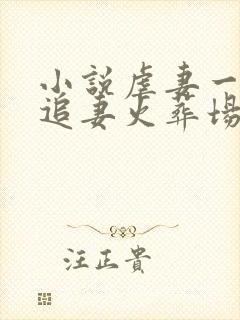 小說虐妻一
追妻火葬場
汪正貴